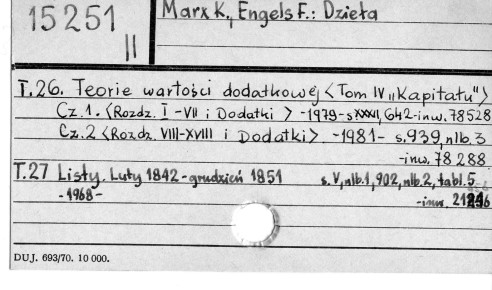 15251
II
Marx K., Engels F.: Dzieła
T.26. Teorie wartości dodatkowej <Tom IV "Kapitału">
Cz.1. <Rozdz. I-VII i Dodatki> -1979- s.XXXVI, 642 -inw. 78528
Cz.2 <Rozdz. VIII-XVIII i Dodatki> -1981- s.939, nlb.3
-inw. 78288
T.27 Listy. Luty 1842 - grudzień 1851 s.V, nlb.1, 902, nlb.2, tabl.5
-1968- -inw.
DUJ. 693/70. 10 000.